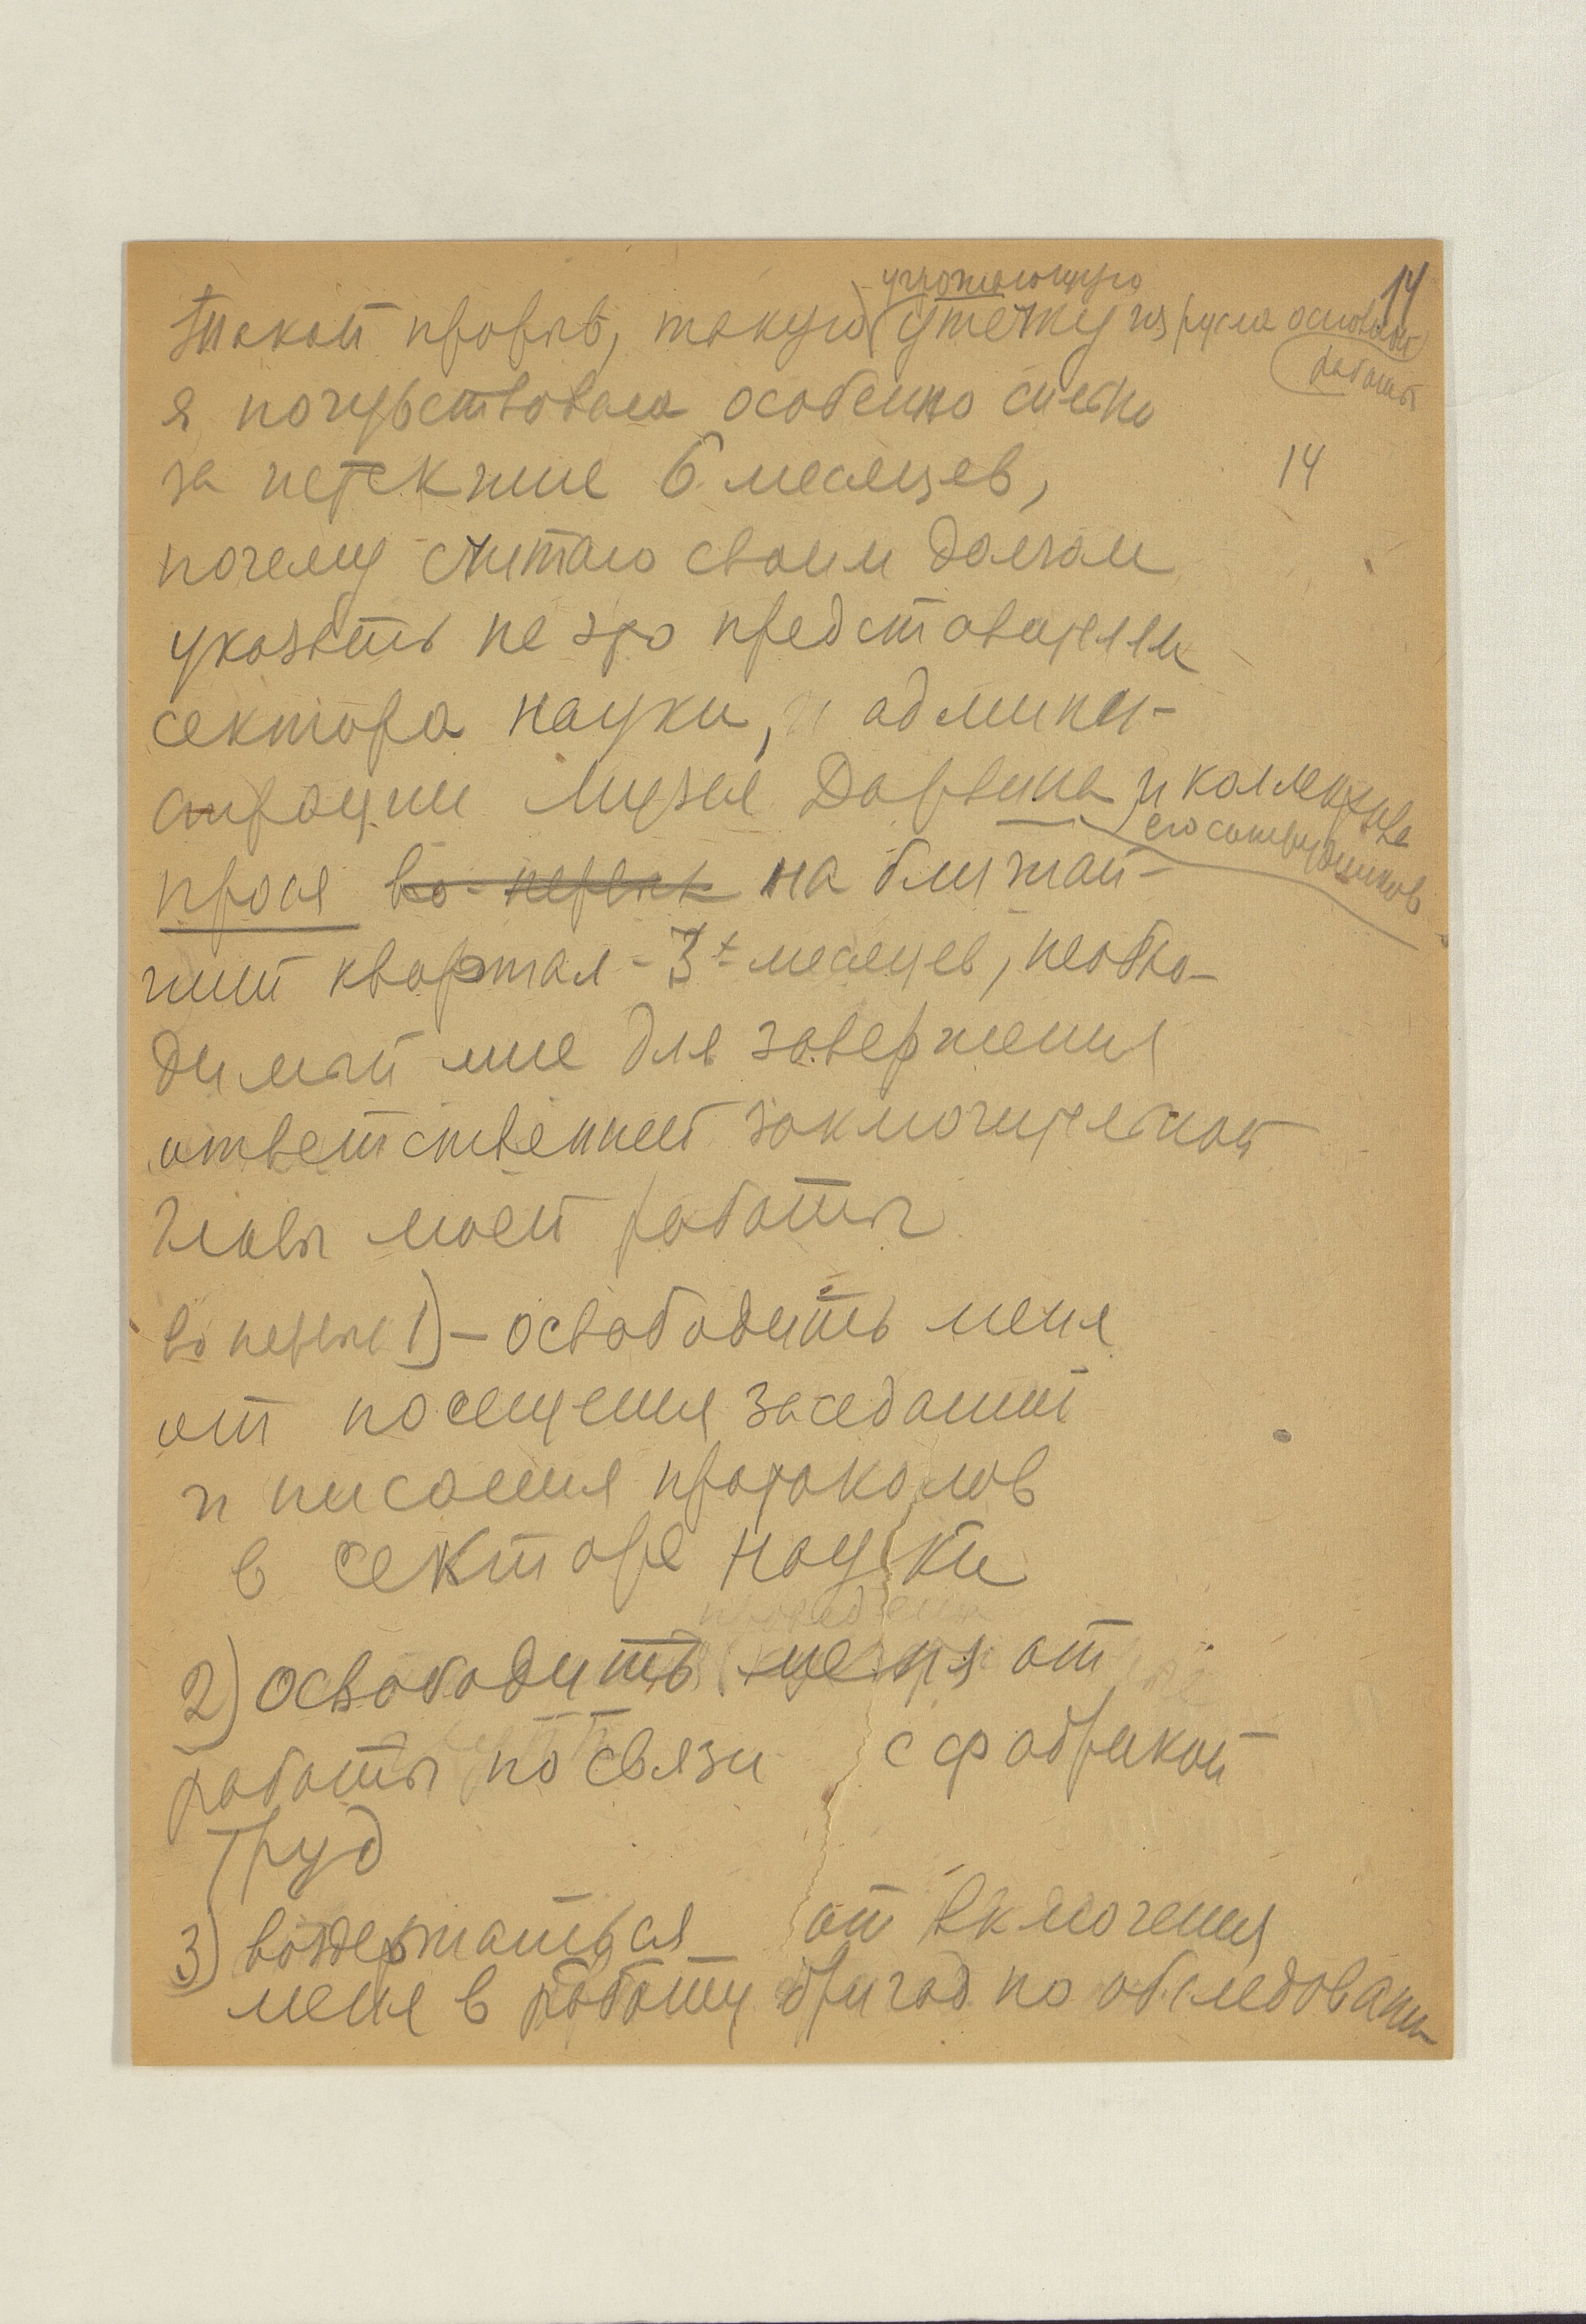 14
угрожающую
Такой прорыв, такую утечку из русла основной
работы
я почувствовала особенно сильно
за истекшие 6 месяцев,
14
почему считаю своим долгом
указать на это представителям
сектора науки, и админи-
страции Музея Дарвина и коллектива
его сотрудников
прося во-первых на ближай-
ший квартал - 3х месяцев, необхо-
димый мне для завершения
ответственной заключительной
главы моей работы
во первых 1) - освободить меня
от посещения заседаний
и писания протоколов
в секторе науки
2) освободить меня от
работы по связи с фабрикой
Труд
3) воздержаться от включения
меня в работу бригад по обследованию